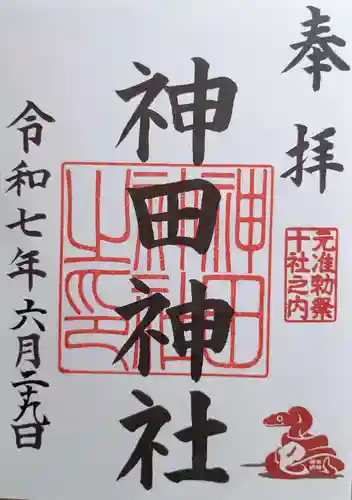 奉拝
元准勅祭
十社之内
神田神社
神田
神社
之印
令和七年六月二十九日
巳